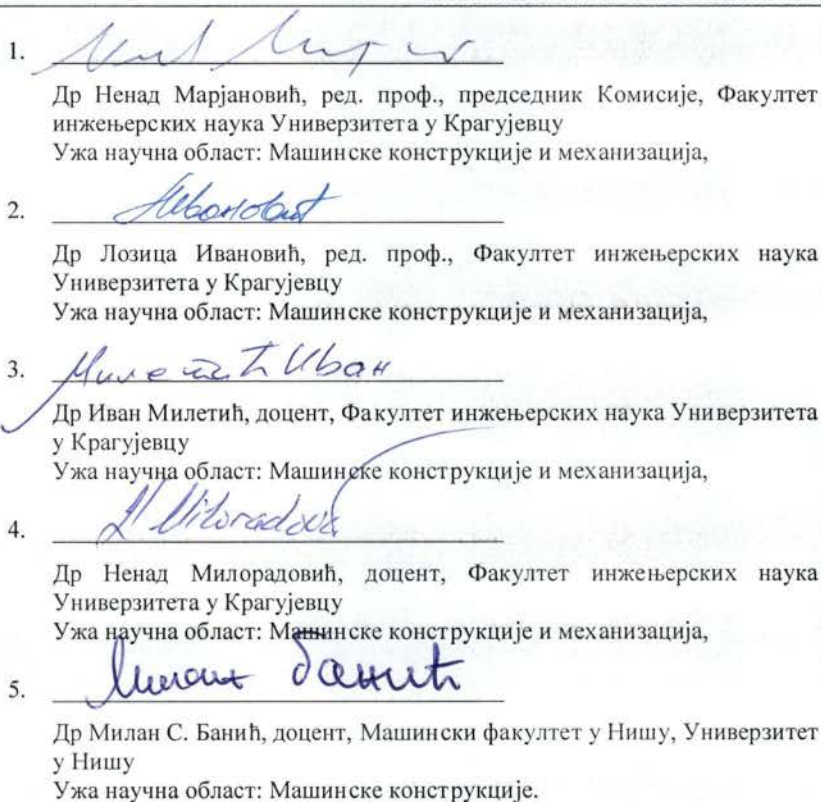 1.
Др Ненад Марјановић, ред. проф., председник Комисије, Факултет
инжењерских наука Универзитета у Крагујевцу
Ужа научна област: Машинске конструкције и механизација,
2. Ивановић
Др Лозица Ивановић, ред. проф., Факултет инжењерских наука
Универзитета у Крагујевцу
Ужа научна област: Машинске конструкције и механизација,
3. Милетић Иван
Др Иван Милетић, доцент, Факултет инжењерских наука Универзитета
у Крагујевцу
Ужа научна област: Машинске конструкције и механизација,
4. N Miloradović
Др Ненад Милорадовић, доцент, Факултет инжењерских наука
Универзитета у Крагујевцу
Ужа научна област: Машинске конструкције и механизација,
5. Милан Банић
Др Милан С. Банић, доцент, Машински факултет у Нишу, Универзитет
у Нишу
Ужа научна област: Машинске конструкције.